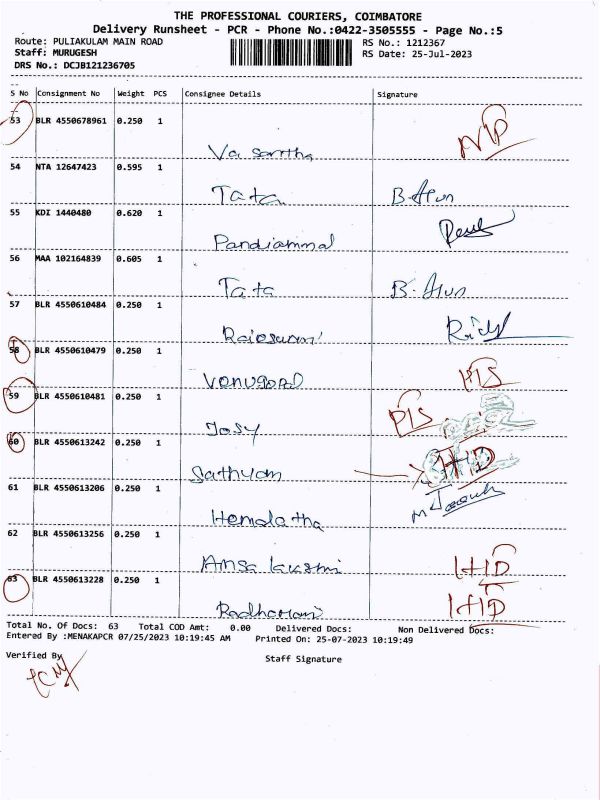 THE PROFESSIONAL COURIERS, COIMBATORE
Delivery Runsheet - PCR - Phone No.:0422-3505555 - Page No.:5
Route: PULIAKULAM MAIN ROAD RS No.: 1212367
Staff: MURUGESH RS Date: 25-Jul-2023
DRS No.: DCJB121236705
S No Consignment No Weight PCS Consignee Details Signature
53 BLR 4550678961 0.250 1
Vasantha
54 NTA 12647423 0.595 1
Tata B-Arun
55 KDI 1440480 0.620 1
Pandiammal
56 MAA 102164839 0.605 1
Tata B-Arun
57 BLR 4550610484 0.250 1
58 BLR 4550610479 0.250 1
Venugopal
59 BLR 4550610481 0.250 1
Josy
60 BLR 4550613242 0.250 1
Sathyam HID
61 BLR 4550613206 0.250 1
Hemalatha
62 BLR 4550613256 0.250 1
HID
63 BLR 4550613228 0.250 1
Radhamani HID
Total No. Of Docs: 63 Total COD Amt: 0.00 Delivered Docs: Non Delivered Docs:
Entered By :MENAKAPCR 07/25/2023 10:19:45 AM Printed On: 25-07-2023 10:19:49
Verified By
Staff Signature